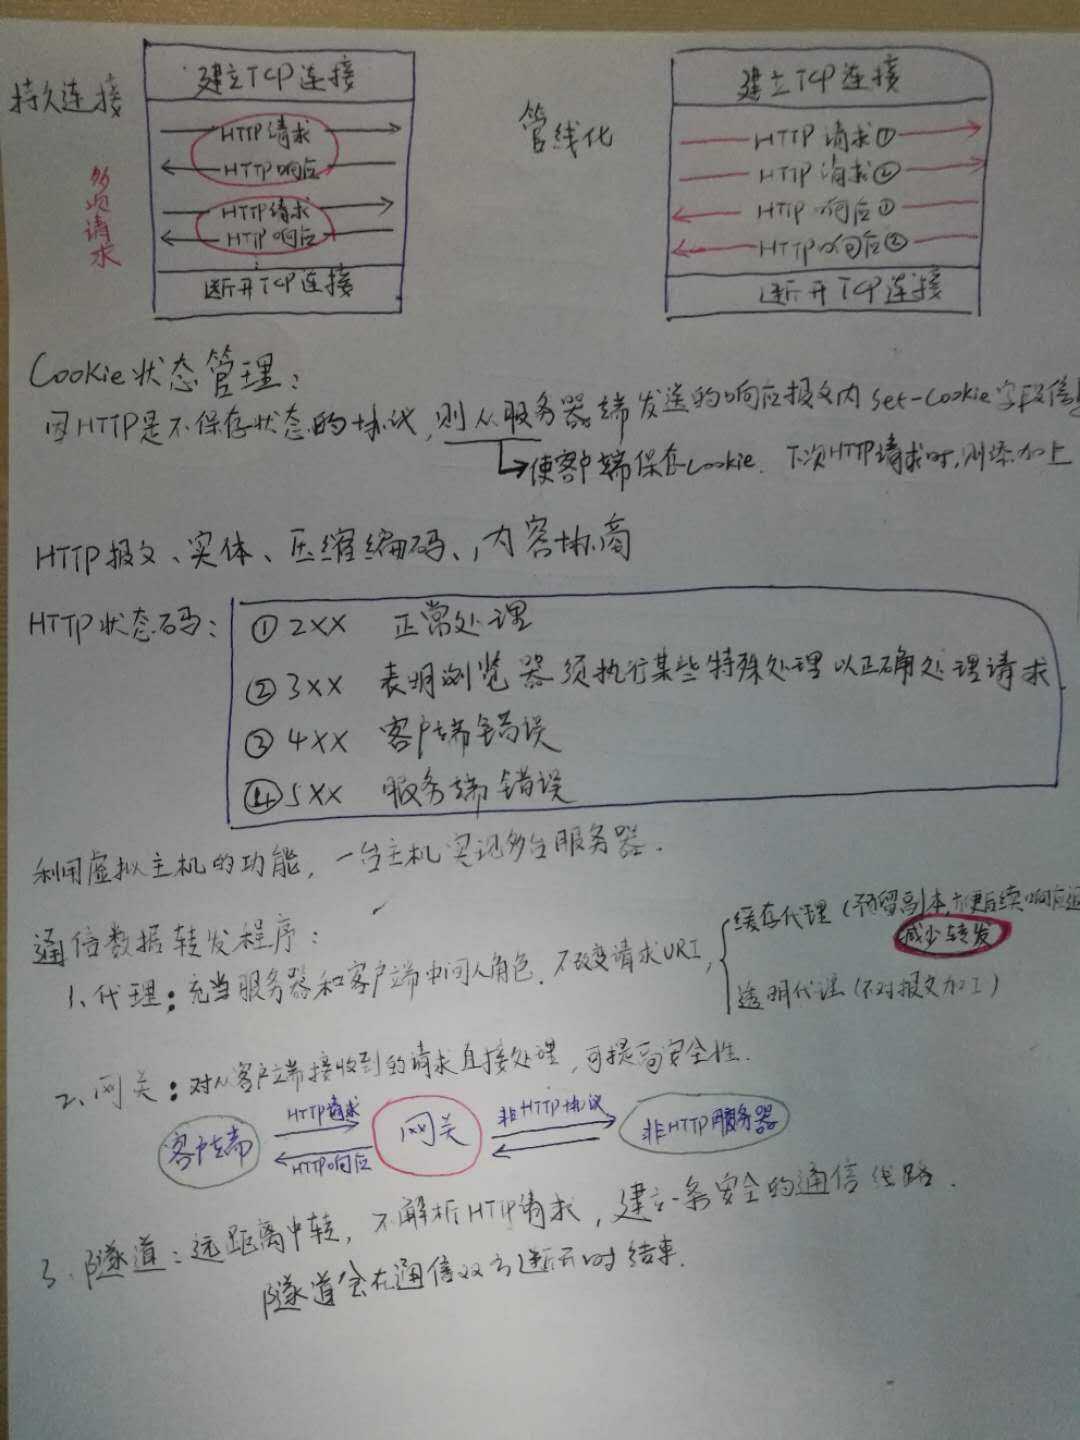 持久连接
多项请求
建立TCP连接
HTTP请求
HTTP响应
HTTP请求
HTTP响应
断开TCP连接
管线化
建立TCP连接
HTTP请求①
HTTP请求②
HTTP响应①
HTTP响应②
断开TCP连接
Cookie状态管理:
因HTTP是不保存状态的协议,则从服务器端发送的响应报文内 Set-Cookie字段信息
使客户端保存Cookie. 下次HTTP请求时,则添加上
HTTP报文、实体、压缩编码、内容协商
HTTP状态码:
① 2XX 正常处理
② 3XX 表明浏览器须执行某些特殊处理以正确处理请求.
③ 4XX 客户端错误
④ 5XX 服务端错误
利用虚拟主机的功能, 一台主机实现多台服务器.
通信数据转发程序:
1、代理:充当服务器和客户端中间人角色. 不改变请求URI,
缓存代理(预留副本,方便后续响应
减少转发
透明代理(不对报文加工)
2、网关:对从客户端接收到的请求直接处理,可提高安全性.
客户端
HTTP请求
HTTP响应
网关
非HTTP协议
非HTTP服务器
3、隧道:远距离中转, 不解析HTTP请求, 建立一条安全的通信线路.
隧道会在通信双方断开时结束.